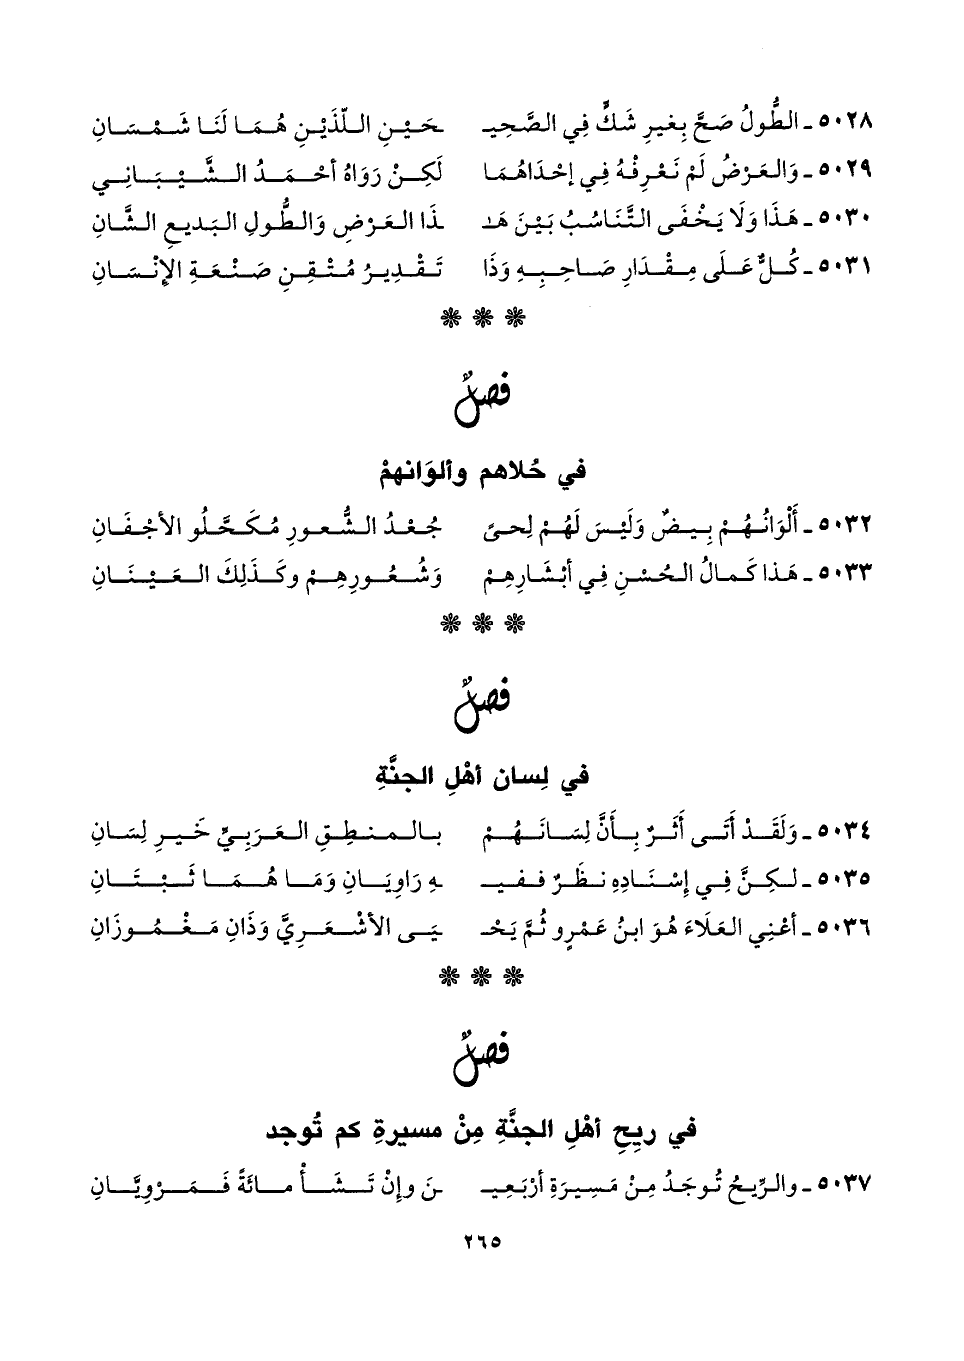 ٥٠٢٨ـ الطُّولُ صَحَّ بِغيرِ شَكٍّ فِي الصَّحِيـ ـحَيْنِ اللَّذَيْنِ هُمَا لَنَا شَمْسَانِ
٥٠٢٩ـ وَالعَرْضُ لَمْ نَعْرِفْهُ فِي إحْدَاهُمَا لَكِنْ رَوَاهُ أحْمَدُ الشَّيْبَانِي
٥٠٣٠ـ هَذَا وَلَا يَخْفَى التَّنَاسُبُ بَيْنَ هَـ ـذَا العَرْضِ وَالطُّولِ البَدِيعِ الشَّانِ
٥٠٣١ـ كُلٌّ عَلَى مِقْدَارِ صَاحِبِهِ وَذَا تَقْدِيرُ مُتْقِنِ صَنْعَةِ الإنْسَانِ
فصلٌ
في حُلاهم وألوَانهمْ
٥٠٣٢ـ أَلْوَانُهُمْ بِيضٌ وَلَيْسَ لَهُمْ لِحىً جُعْدُ الشُّعورِ مُكَحَّلُو الأجْفَانِ
٥٠٣٣ـ هَذَا كَمالُ الحُسْنِ فِي أبْشَارِهِمْ وَشُعُورِهِمْ وكَذَلِكَ العَيْنَانِ
فصلٌ
في لِسان أهْلِ الجنَّةِ
٥٠٣٤ـ وَلَقَدْ أَتَى أثَرٌ بِأَنَّ لِسَانَهُمْ بالمنطِقِ العَرَبِيِّ خَيرِ لِسَانِ
٥٠٣٥ـ لكِنَّ فِي إسْنَادِهِ نظَرٌ ففيـ ـهِ رَاوِيَانِ وَمَا هُمَا ثَبْتَانِ
٥٠٣٦ـ أعْنِي العَلَاءَ هُوَ ابنُ عَمْرٍو ثُمَّ يَحْـ ـيَى الأشْعَرِيَّ وَذَانِ مَغْمُوزَانِ
فصلٌ
في ريِحِ أهْلِ الجنَّةِ مِنْ مسيرةِ كم تُوجد
٥٠٣٧ـ والرِّيحُ تُوجَدُ مِنْ مَسِيرَةِ أرْبَعِيـ ـنَ وإنْ تَشَأْ مائَةً فَمَرْوِيَّانِ
٢٦٥